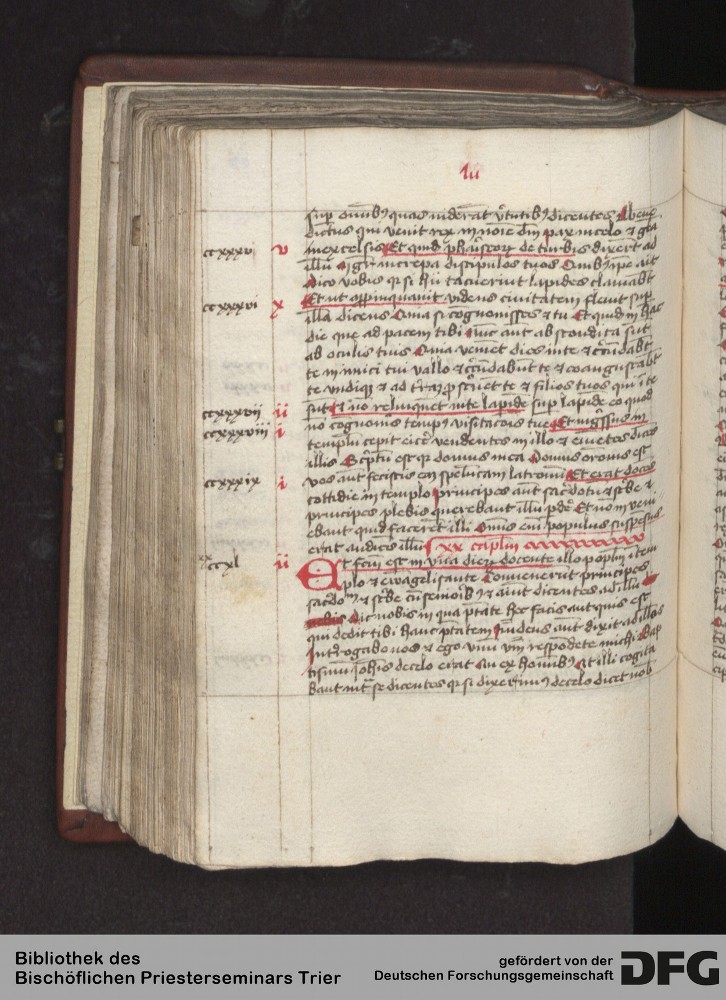 lu
sup omnib9 quas viderat v̄tutib9 dicentes Bene
dictus qui venit rex in noīe dm̄ pax in celo et gl̄ia
ccxxxvi v in excelsis Et quid phariseorum de turbis dixer̄t ad
illū Mgr̄ increpa discipulos tuos Quib9 ip̄e ait
Dico vobis qr si hii tacuerint lapides clamab̄t
ccxxxvi x Et ut app̄inquauit videns ciuitatem fleuit sup
illā dicens Quia si cognouisses et tu Et quidem in hac
die que ad pacem tibi Nūc aut abscondita sūt
ab oculis tuis Quia veniēt dies in te et circūdab̄t
te inimici tui vallo et circūdabūt te et coangustab̄t
te undiqꝫ et ad trā p̄sternēt te et filios tuos qui ī te
ccxxxvii ii sūt Et nō relinquent in te lapidē sup lapidē eo quod
ccxxxviii i nō cognouis temp9 visitacōis tue Et ingressus in
templū cepit eicē vendentes in illo et emētes dicēs
illis Scptū est qr domus mea Domus orōnis est
ccxxxix i vos aut fecistis eā speluncam latronū Et erat docēs
cottidie in templo principes aut sac̄dotū et scribe et
principes plebis querebant illū p̄dē Et nō inveni
ebant quid facerēt illi Omnis em̄ populus suspensus
erat audiēs illū xx capl̄m
ccxl ii Et fc̄m est in vna dierū docente illo poplm̄ ī tem
plo et ewagelisante Conuenerūt principes
sac̄do et scribe cū seniorib9 et aiūt dicentes ad illū
Dic nobis in qua ptate hec facis aut quis est
qui dedit tibi hanc ptatem Ihesus aut dixit ad illos
Introgabo vos et ego vnū vm̄ respōdete michi Bap
tismū Iohis de celo erat an ex hoīnib9 At illi cogita
bant int̄ se dicentes qr si dixerim9 de celo dicet nob̄
Bibliothek des
Bischöflichen Priesterseminars Trier
gefördert von der
Deutschen Forschungsgemeinschaft
DFG